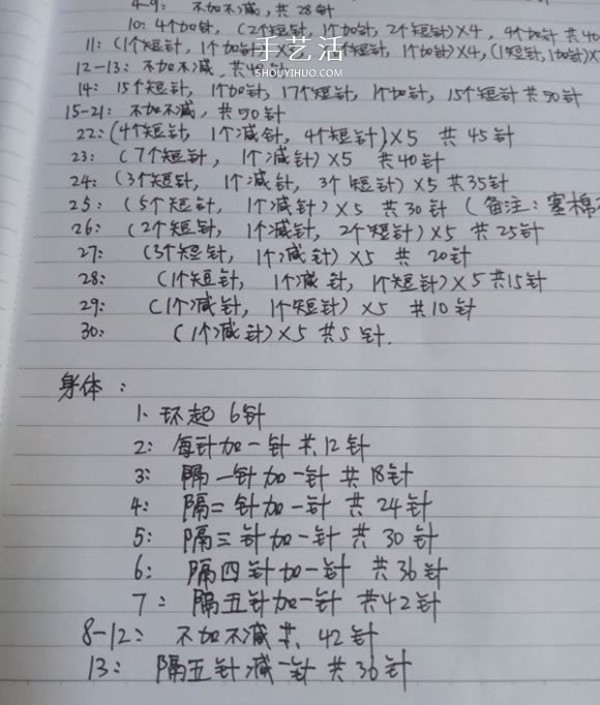 4-9: 不加不减,共28针
10: 4个加针, (2个短针, 1个加针, 2个短针)×4, 4个加针 共40
11: (1个短针, 1个加针) 短针, 1个加针)×4, (1短针, 1加针)×
手艺活
SHOUYIHUO.COM
12-13: 不加不减, 共4 针
14: 15个短针, 1个加针, 17个短针, 1个加针, 15个短针 共50针
15-21: 不加不减, 共50针
22: (4个短针, 1个减针, 4个短针)×5 共45针
23: (7个短针, 1个减针)×5 共40针
24: (3个短针, 1个减针, 3个短针)×5 共35针
25: (5个短针, 1个减针)×5 共30针 (备注: 塞棉
26: (2个短针, 1个减针, 2个短针)×5 共25针
27: (3个短针, 1个减针)×5 共20针
28: (1个短针, 1个减针, 1个短针)×5 共15针
29: (1个减针, 1个短针)×5 共10针
30: (1个减针)×5 共5针.
身体:
1. 环起 6针
2: 每针加一针 共12针
3: 隔一针加一针 共18针
4: 隔二针加一针 共24针
5: 隔三针加一针 共30针
6: 隔四针加一针 共36针
7: 隔五针加一针 共42针
8-12: 不加不减 共, 42针
13: 隔五针减一针 共36针